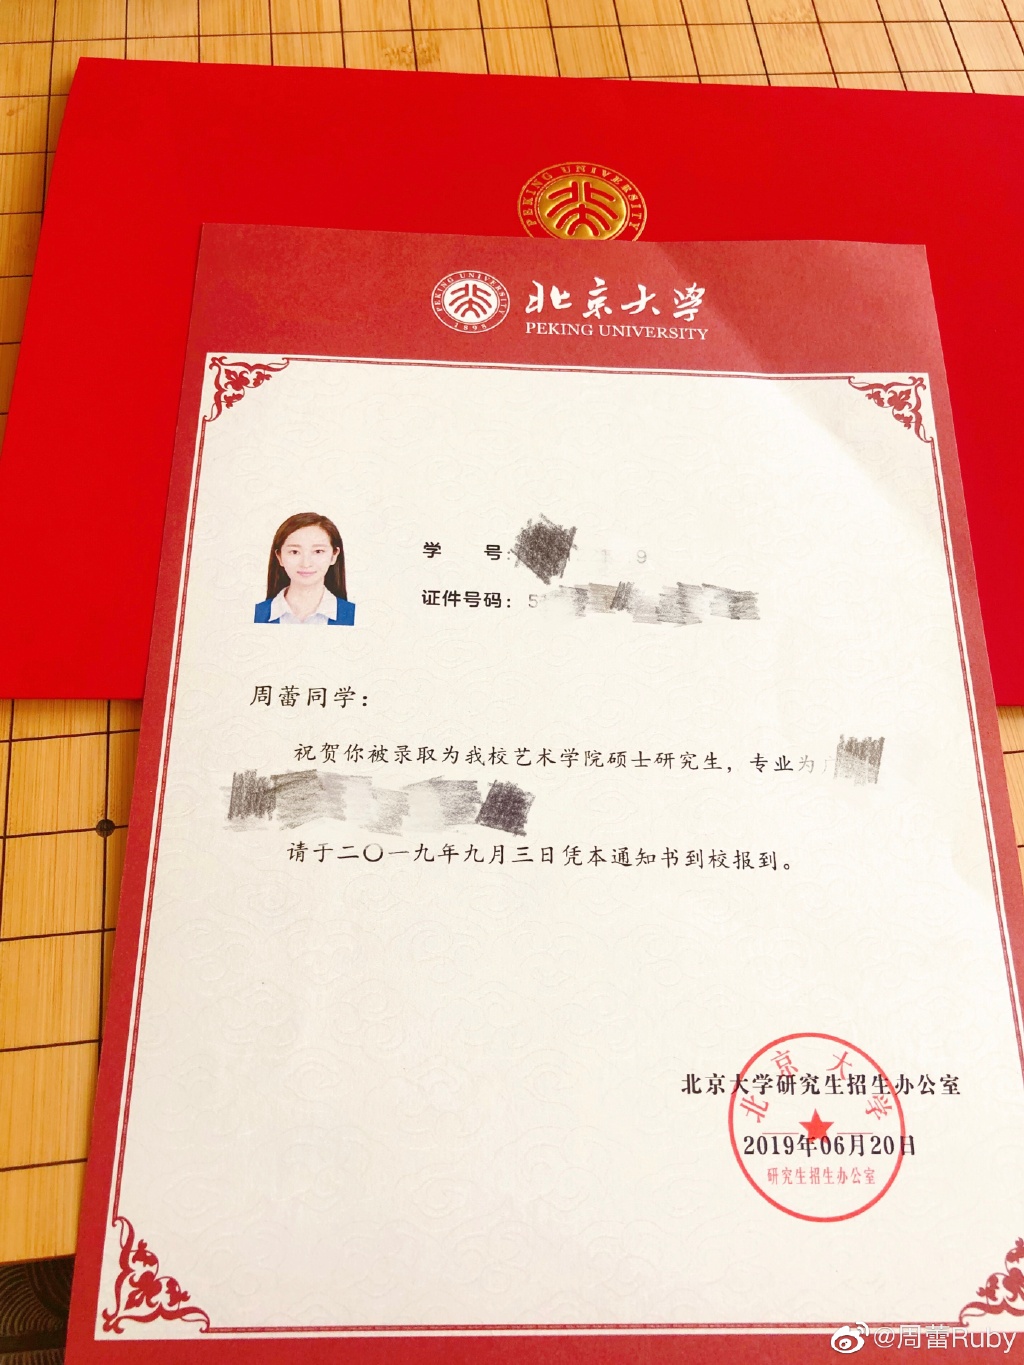 PEKING UNIVERSITY
PEKING UNIVERSITY
1898
北京大学
PEKING UNIVERSITY
学 号：
9
证件号码：5
周蕾同学：
祝贺你被录取为我校艺术学院硕士研究生，专业为广
请于二〇一九年九月三日凭本通知书到校报到。
北京大学研究生招生办公室
北京大学
2019年06月20日
研究生招生办公室
@周蕾Ruby